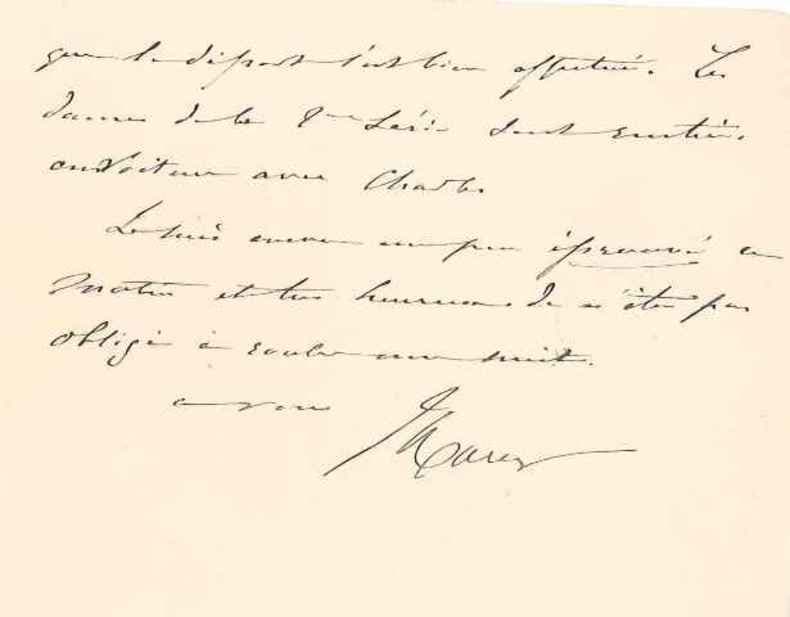 que le départ s'est bien effectué. Les
dames de la 2me Série sont
en voiture avec Charles
Je suis encore un peu éprouvé ce
matin et très heureux de n'être pas
obligé à rouler une nuit.
à vous